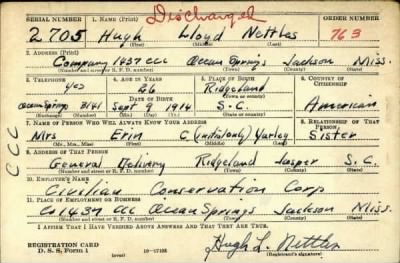 Discharged
SERIAL NUMBER 1. NAME (Print) ORDER NUMBER
2705 Hugh Lloyd Nettles 763
(First) (Middle) (Last)
2. ADDRESS (Print)
Company 1437 CCC Ocean Springs Jackson Miss.
(Number and street or R. F. D. number) (Town) (County) (State)
3. TELEPHONE 4. AGE IN YEARS 5. PLACE OF BIRTH 6. COUNTRY OF CITIZENSHIP
yes 26 Ridgeland
DATE OF BIRTH (Town or county)
Ocean Springs 3141 Sept 9 1914 S.C. American
(Exchange) (Number) (Mo.) (Day) (Yr.) (State or country)
7. NAME OF PERSON WHO WILL ALWAYS KNOW YOUR ADDRESS 8. RELATIONSHIP OF THAT PERSON
Mrs Erin C (initial only) Varley Sister
(Mr., Mrs., Miss) (First) (Middle) (Last)
9. ADDRESS OF THAT PERSON
General Delivery Ridgeland Jasper S.C.
(Number and street or R. F. D. number) (Town) (County) (State)
10. EMPLOYER'S NAME
Civilian Conservation Corp
11. PLACE OF EMPLOYMENT OR BUSINESS
Co 1437 CCC Ocean Springs Jackson Miss.
(Number and street or R. F. D. number) (Town) (County) (State)
I AFFIRM THAT I HAVE VERIFIED ABOVE ANSWERS AND THAT THEY ARE TRUE.
REGISTRATION CARD
D. S. S. Form 1 (over) 16-17105 Hugh L. Nettles
(Registrant's signature)
CCC